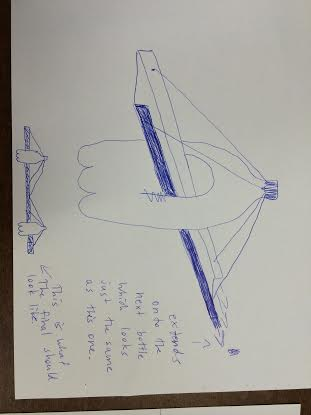 extends
onto the
next bottle
which looks
just the same
as this one.
This is what
The final should
look like.